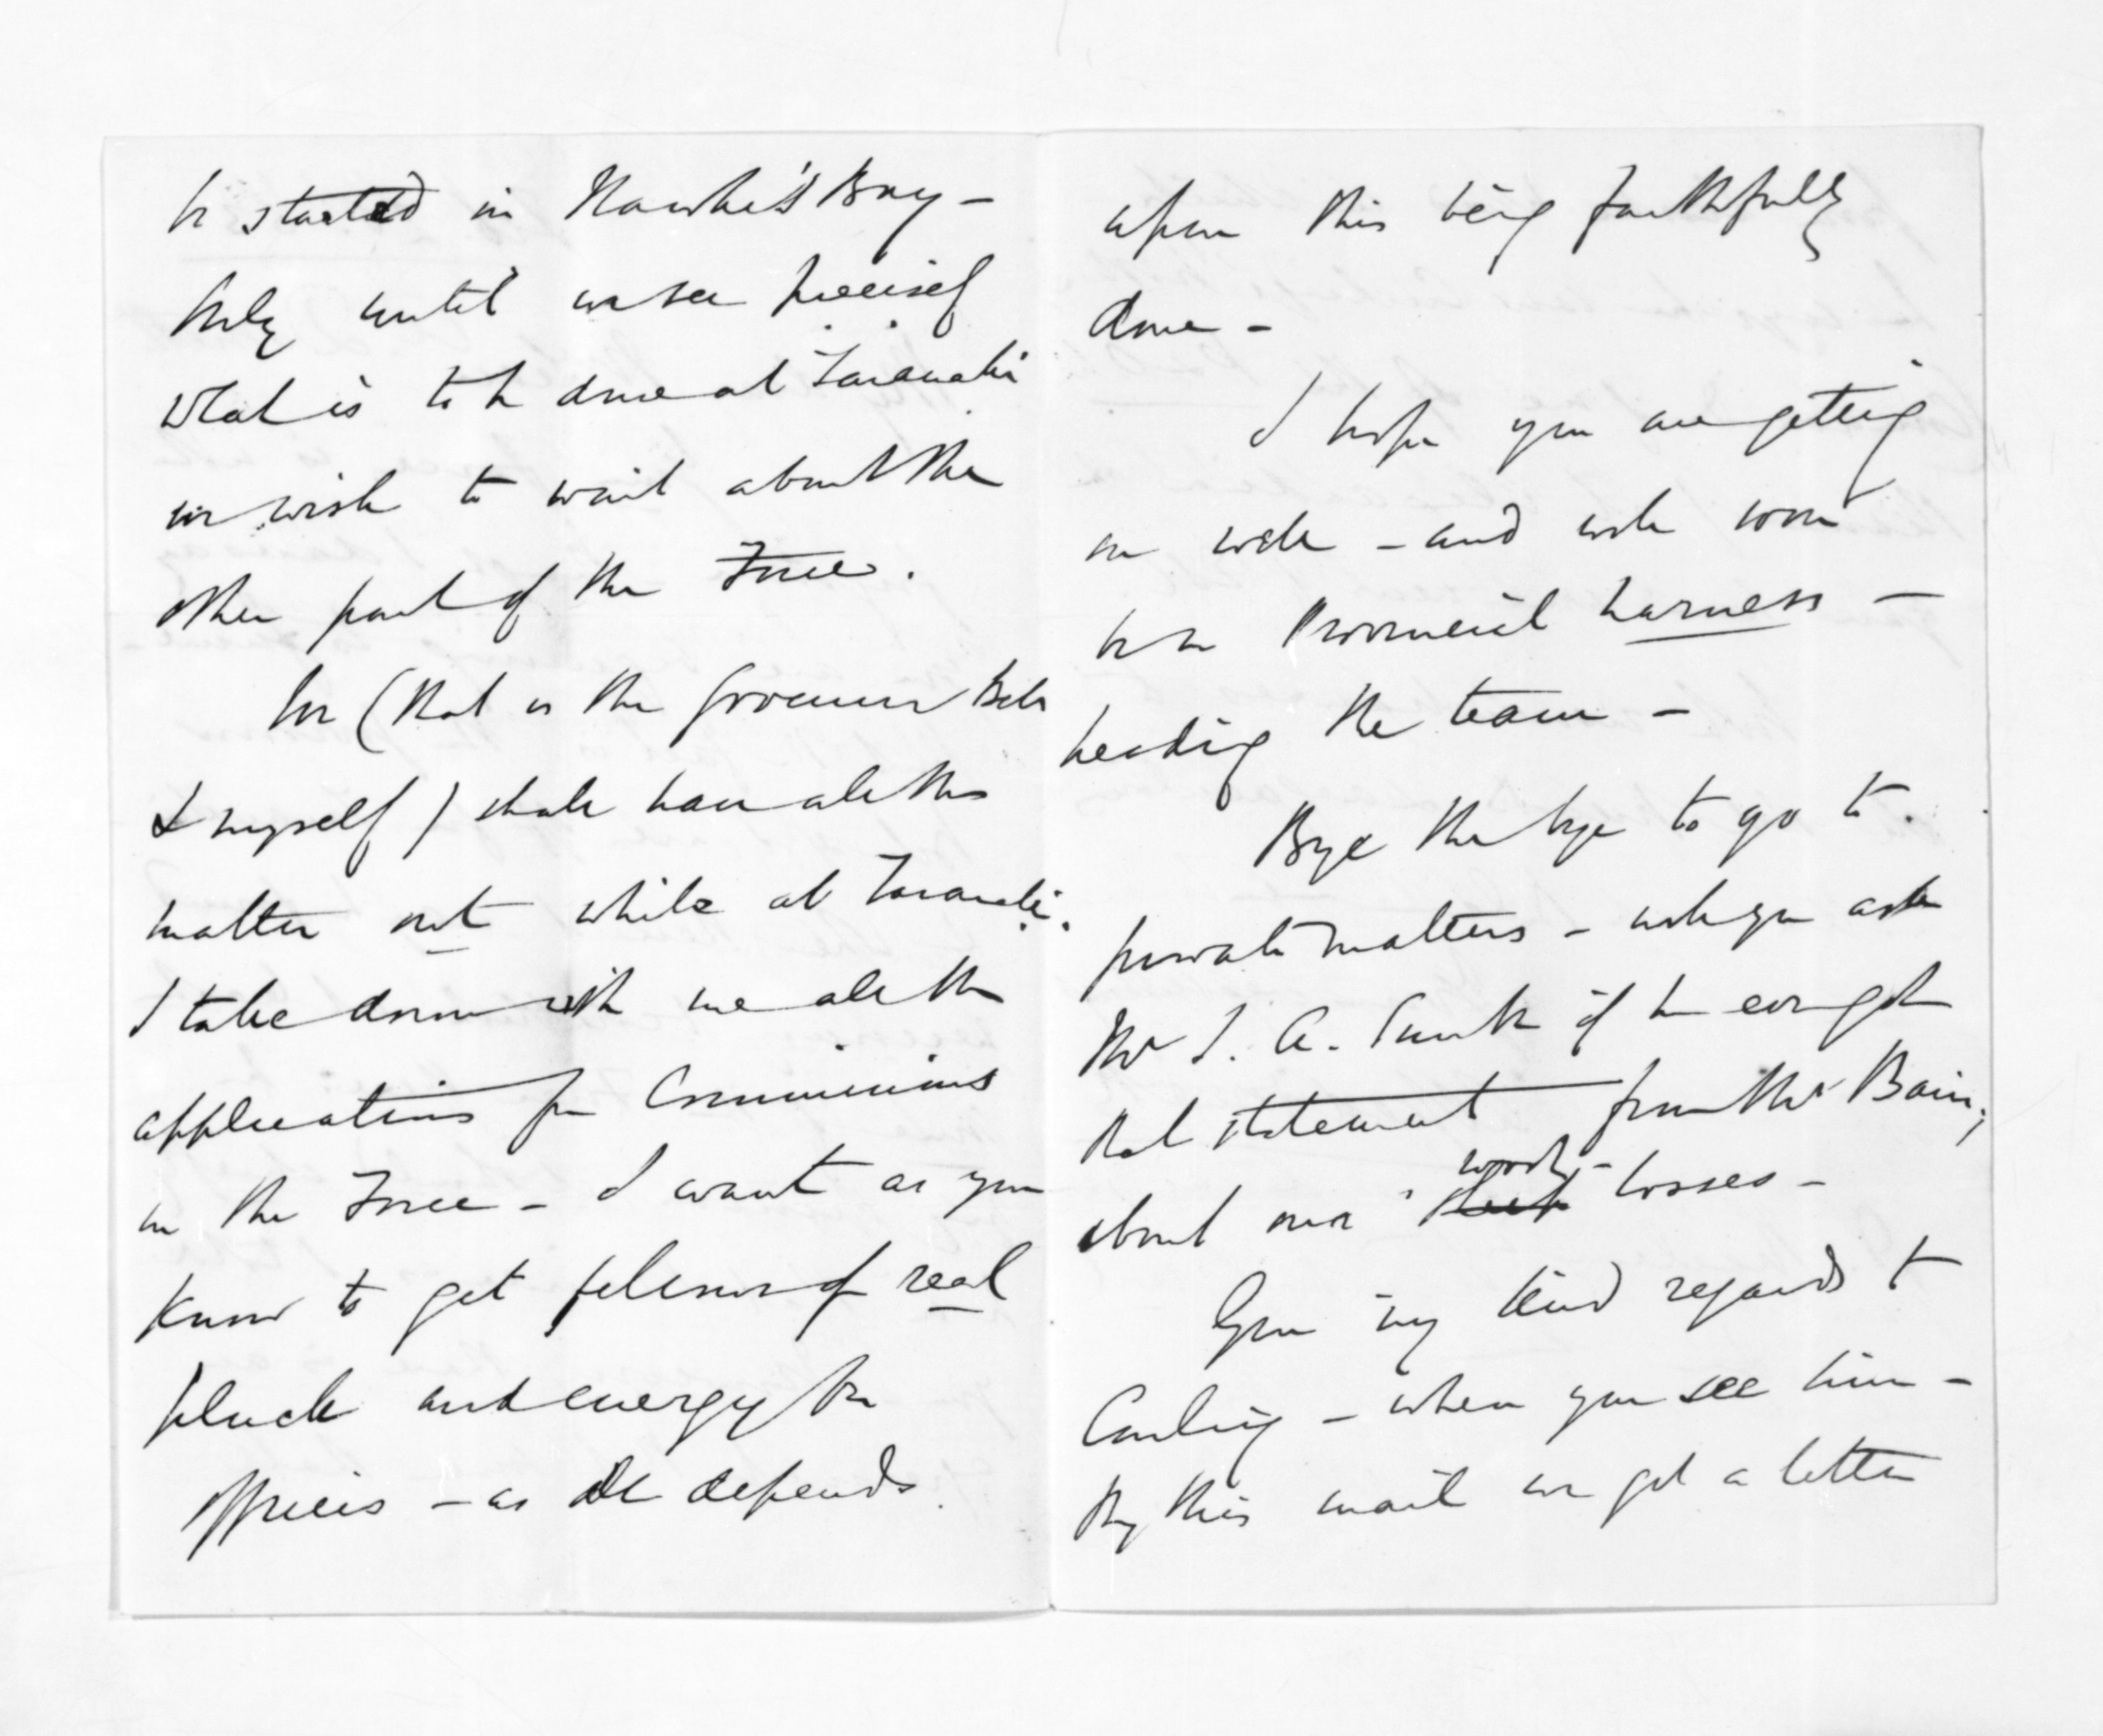 be started in Hawke's Bay -
Only until we see precisely
what is to be done at Taranaki
we wish to wait about the
other part of the Force.
We (that is the Governor Bell
& myself) shall have all this
matter out while at Taranaki.
I take down with me all the
applications for Commissions
in the Force - I want as you
know to get fellows of real
pluck and energy for
officers - as all depends
upon this being faithfully
done -
I hope you are getting
on well - and will soon
be in Provincial harness -
heading the team -
Bye the bye to go to
private matters - will you ask
Mr J. A. Smith if he ever got
that statement from Mr Bain,
about our wool losses -
Give my kind regards to
Curling - when you see him -
By this mail we get a letter